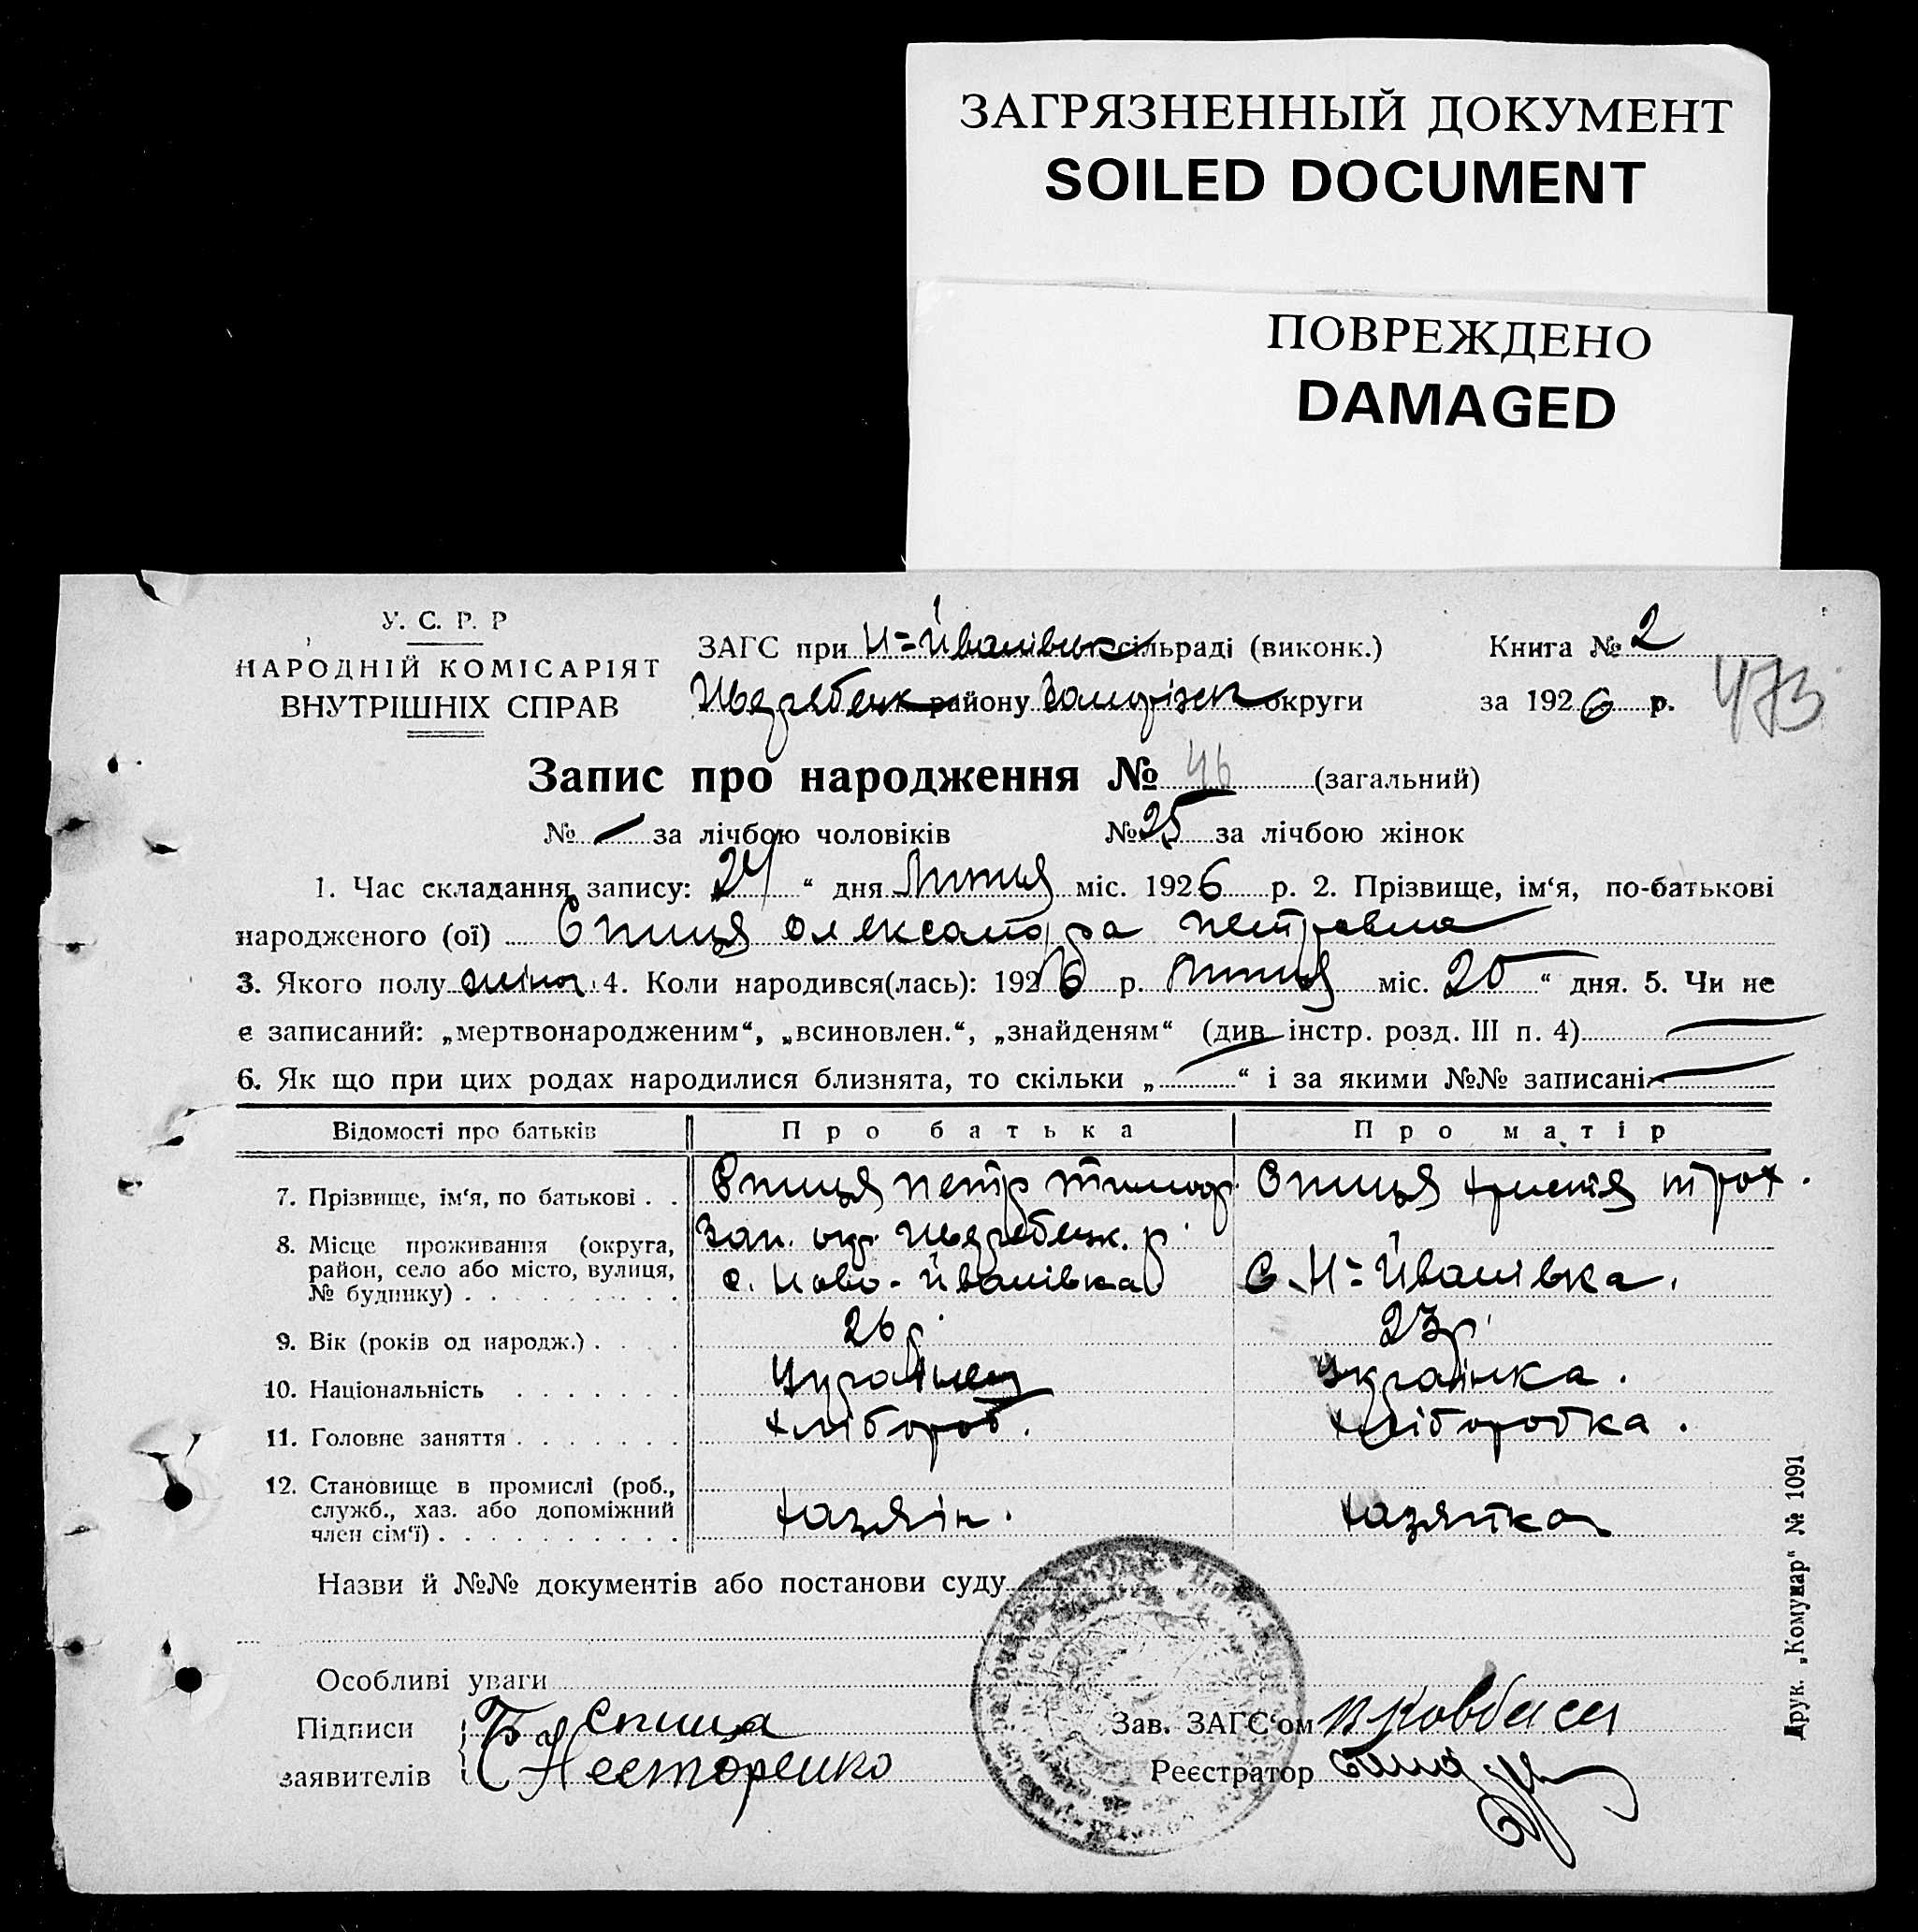 ЗАГРЯЗНЕННЫЙ ДОКУМЕНТ
SOILED DOCUMENT
ПОВРЕЖДЕНО
DAMAGED
У. С. Р. Р
НАРОДНІЙ КОМІСАРІЯТ
ВНУТРІШНІХ СПРАВ
ЗАГС при Н=Йванівськ сільраді (виконк.)
Жеребецк району Запоріжск округи
Книга № 2
за 1926 р.
473
Запис про народження № 46 (загальний)
№ — за лічбою чоловіків № 25 за лічбою жінок
1. Час складання запису: 24 “ дня Липця міс. 1926 р. 2. Прізвище, ім‘я, по-батькові
народженого (ої) Спиця Олександра Петровна
3. Якого полу жіноч 4. Коли народився(лась): 1926 р. Липця міс. 20 “ дня. 5. Чи не
є записаний: „мертвонародженим“, „всиновлен.“, „знайденям“ (див. інстр. розд. III п. 4)
6. Як що при цих родах народилися близнята, то скільки „ — “ і за якими №№ записані —
Відомості про батьків Про батька Про матір
7. Прізвище, ім‘я, по батькові . . Спиця Петр Тимоф. Спиця Христя Трох.
8. Місце проживання (округа, Зап. окр. Жеребецк. р.
район, село або місто, вулиця, с. Ново-Йванівка С. Н=Йванівка.
№ будинку)
9. Вік (років од народж.) 26 р. 23 р.
10. Національність Українец Українка.
11. Головне заняття Хлібороб. Хліборобка.
12. Становище в промислі (роб.,
служб., хаз. або допоміжний Хазяїн. Хазяйка
член сім‘ї)
Назви й №№ документів або постанови суду
Особливі уваги
Підписи Спица Зав. ЗАГС‘ом Ковбаса
заявителів Несторенко Реєстратор
Друк. „Комунар“ № 1091